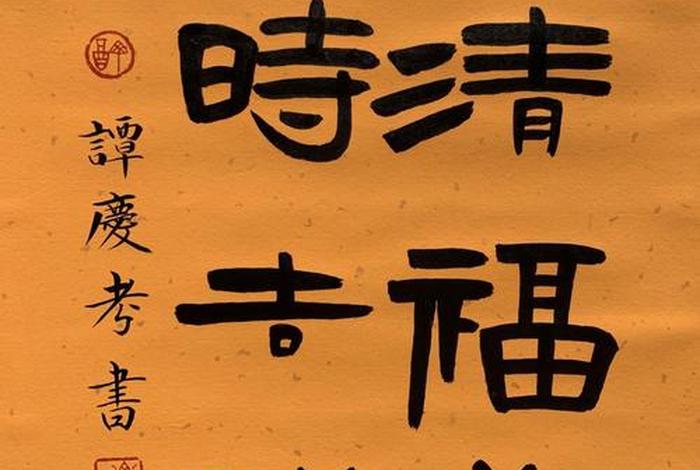 清福
時吉
譚慶考書